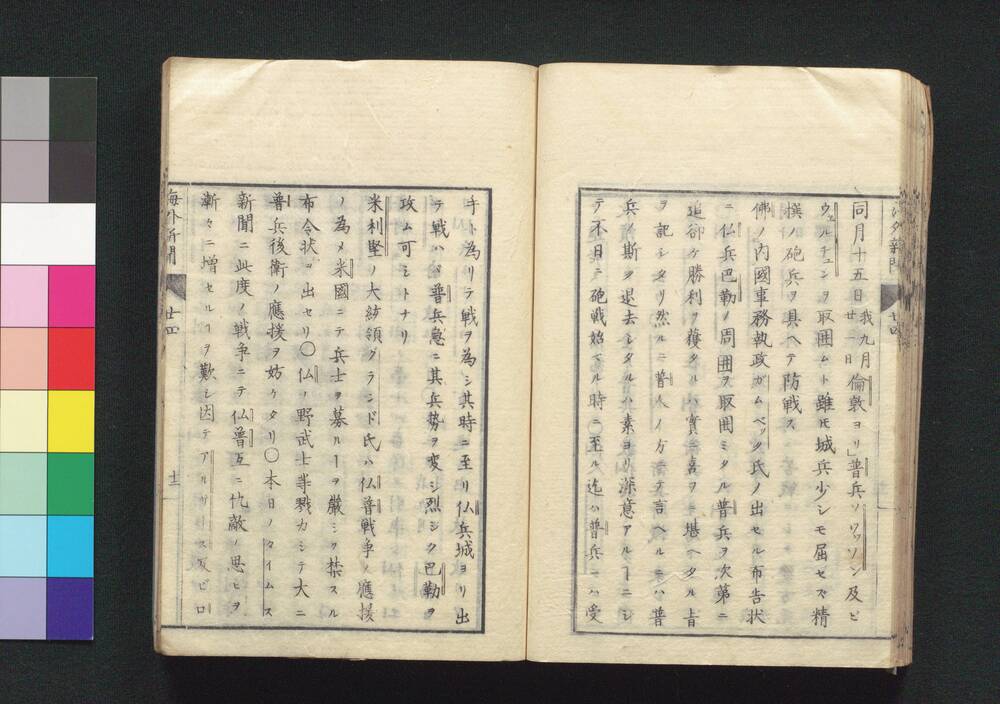 同月十五日我九月廿一日倫敦ヨリ」普兵ソワッソン及ビ
ウェルチュンヲ取囲ムト雖モ城兵少シモ屈セズ精
撰ノ砲兵ヲ具ヘテ防戦ス
佛ノ内國事務執政ガムベック氏ノ出セル布告状
ニ仏兵巴勒ノ周囲ヲ取囲ミタル普兵ヲ次第ニ
追却ケ勝利ヲ獲タルハ實ニ喜ヲニ堪ヘタル旨
ヲ記シタリ然ルニ普人ノ方ニテ言ヘルニハ普
兵ノ斯ク退去シタルハ素ヨリ深意アルヿニシ
テ不日ニテ砲戦始マル時ニ至ル迄ハ普兵ニハ受
手ト為リテ戦ヲ為シ其時ニ至リ仏兵城ヨリ出
テ戦ハヾ普兵急ニ其兵勢ヲ変シ烈シク巴勒ヲ
攻ム可シトナリ
米利堅ノ大統領グランド氏ハ仏普戦争ノ應援
ノ為メ米國ニテ兵士ヲ募ルヿヲ嚴シク禁スル
布令状ヲ出セリ〇仏ノ野武士等戮カシテ大ニ
普兵後衛ノ應援ヲ妨ケタリ〇本日ノタイムス
新聞ニ此度ノ戦争ニテ仏普互ニ仇敵ノ思ヒヲ
漸々ニ増セルヿヲ歎シ因テアルガリス及ビロ
海外新聞
廿四
十二